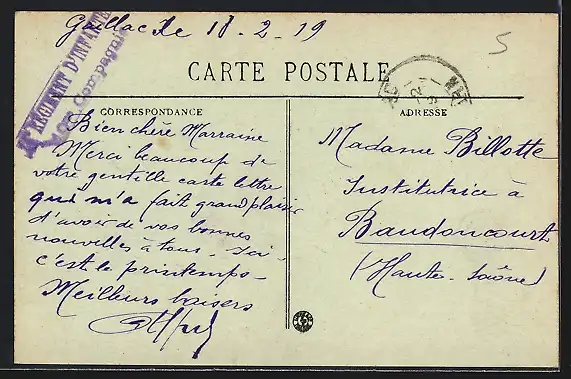 Gaillac le 18-2-19
5
RÉGIMENT D'INFANTERIE
Compagnie
CARTE POSTALE
CORRESPONDANCE
Bien chère Marraine
Merci beaucoup de
votre gentille carte lettre
qui m'a fait grand plaisir
d'avoir de vos bonnes
nouvelles à tous - Ici -
c'est le printemps -
Meilleurs baisers
ADRESSE
Madame Billotte
Institutrice à
Baudoncourt
(Haute-Saône)